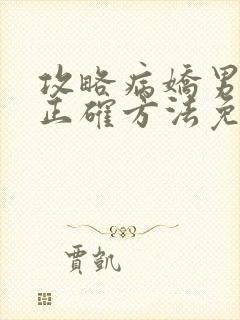 攻略病嬌男
正確方法免
賈凱